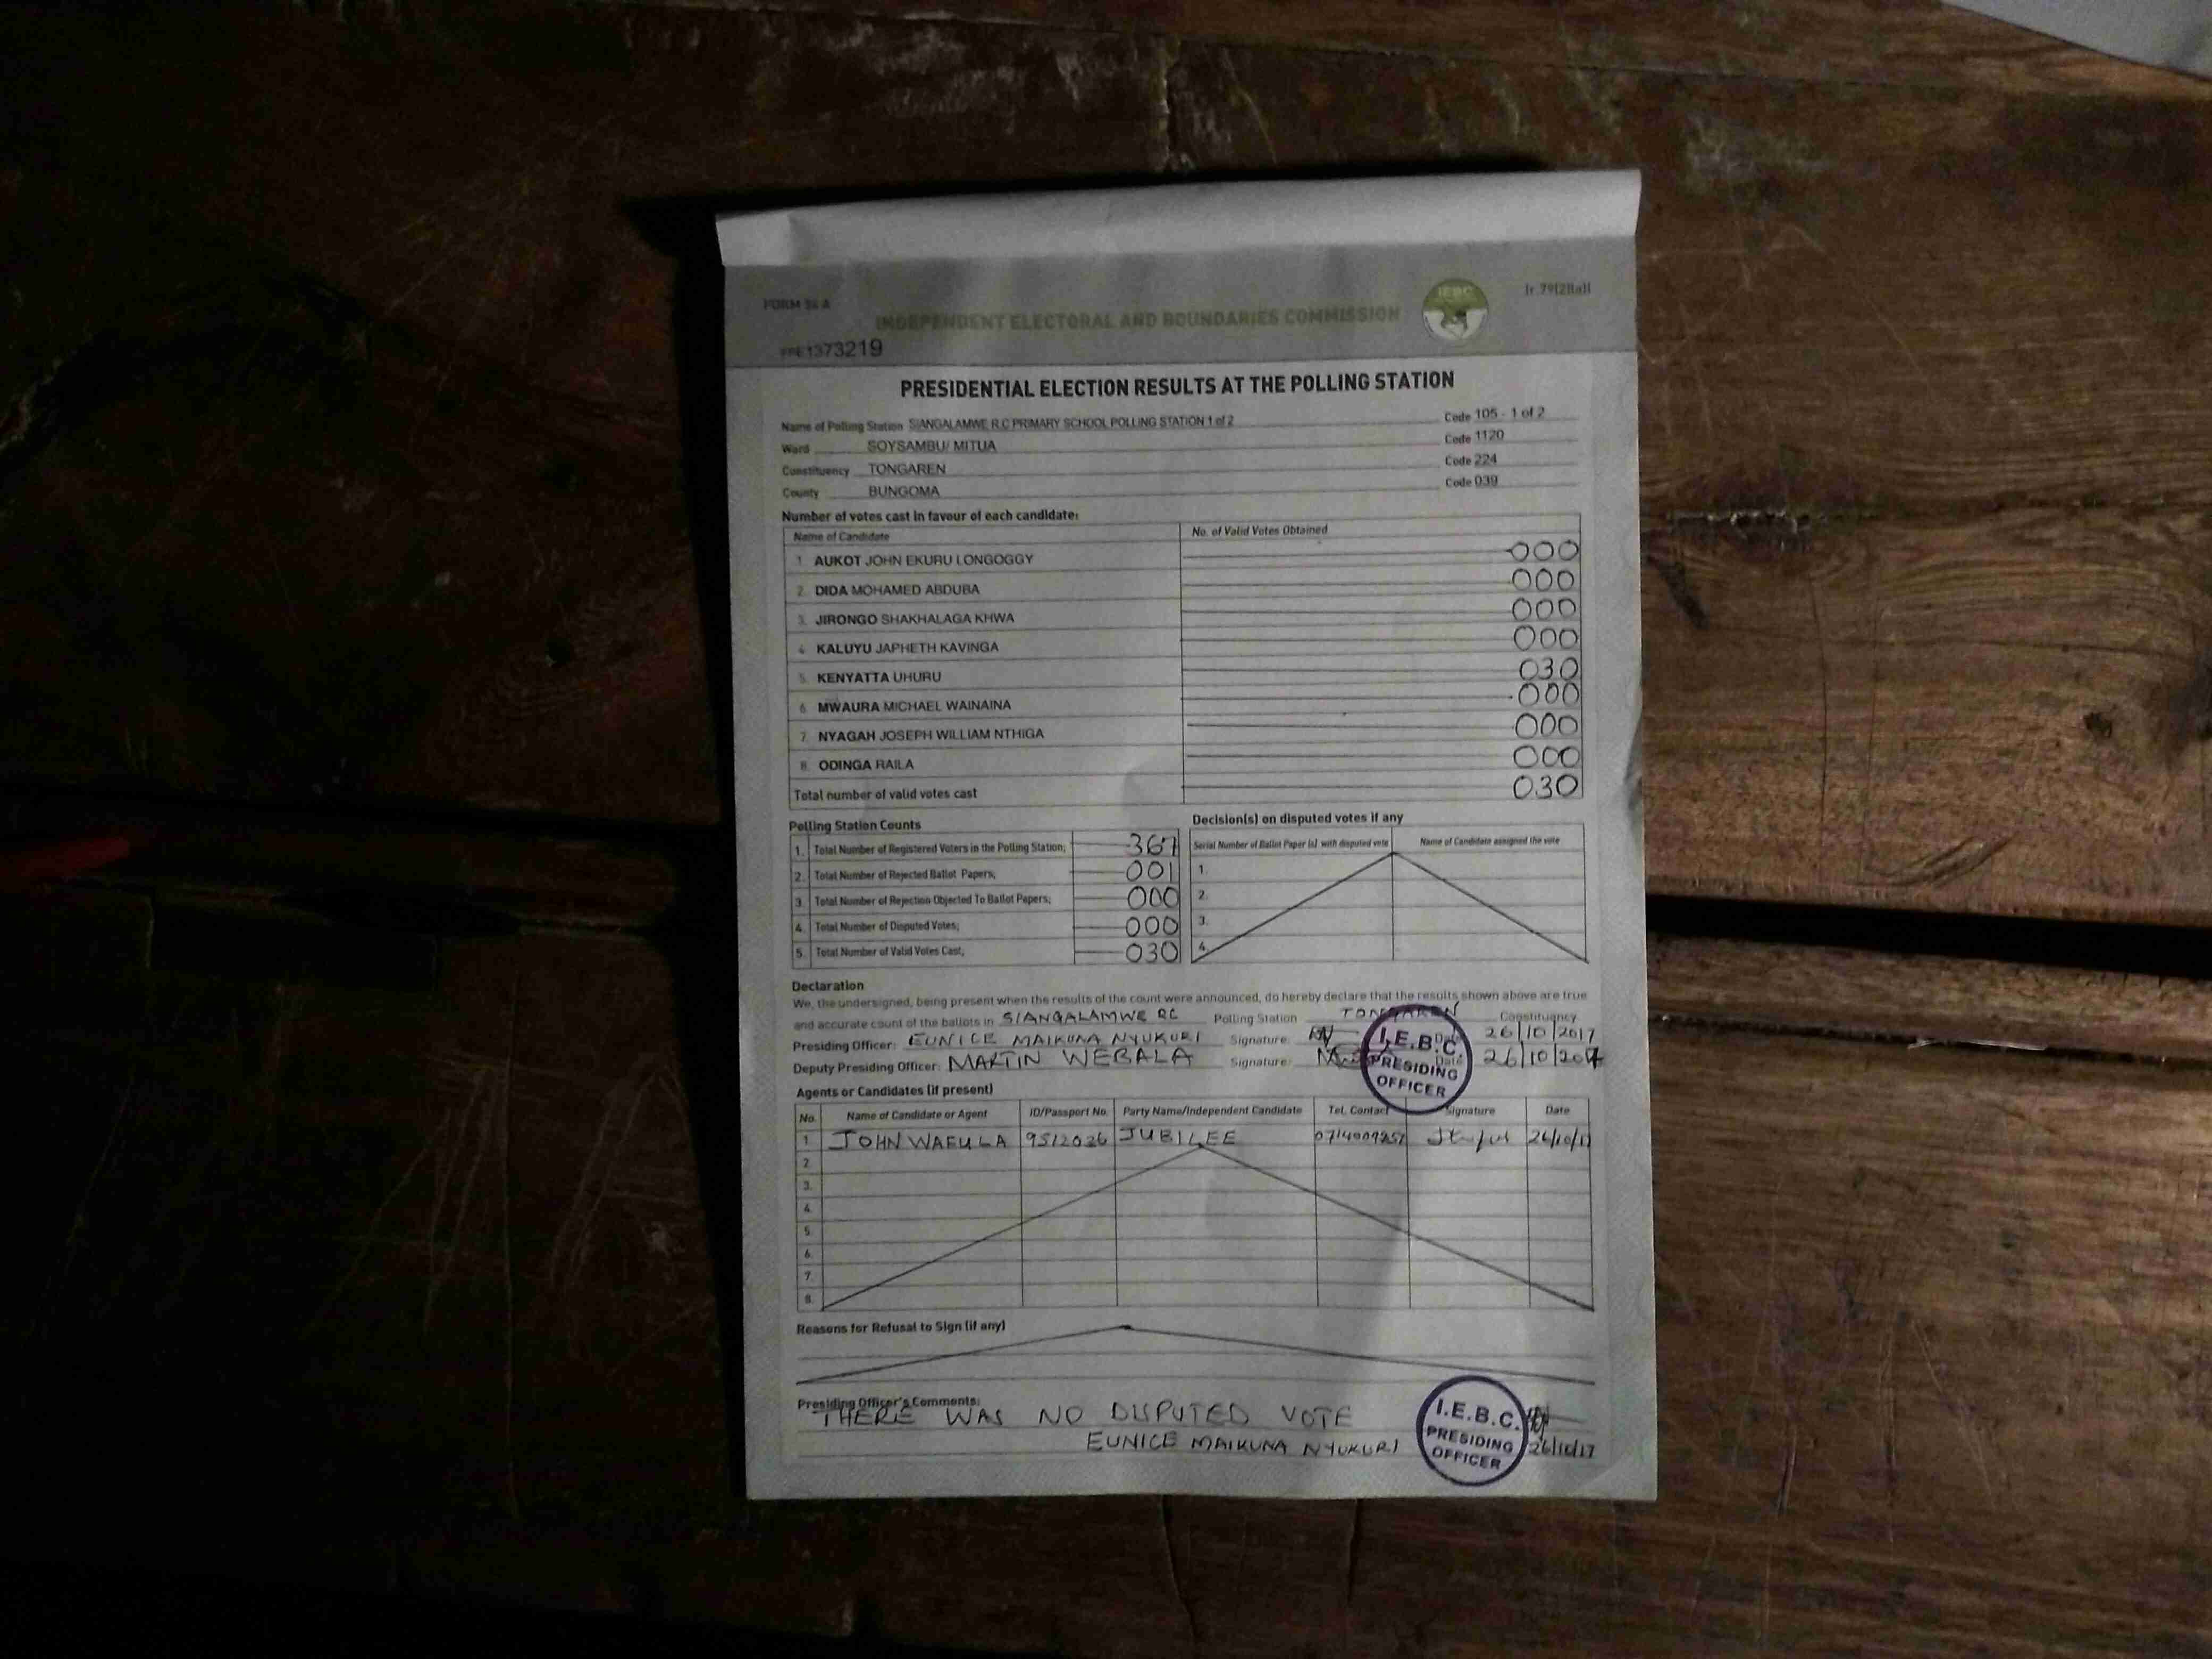 FORM 34 A
INDEPENDENT ELECTORAL AND BOUNDARIES COMMISSION
1373219
PRESIDENTIAL ELECTION RESULTS AT THE POLLING STATION
Name of Polling Station SIANGALAMWE R.C PRIMARY SCHOOL POLLING STATION 1 of 2 Code 105 - 1 of 2
Ward SOYSAMBU/ MITUA Code 1120
Constituency TONGAREN Code 224
County BUNGOMA Code 039
Number of votes cast in favour of each candidate:
Name of Candidate No. of Valid Votes Obtained
1. AUKOT JOHN EKURU LONGOGGY 000
2. DIDA MOHAMED ABDUBA 000
3. JIRONGO SHAKHALAGA KHWA 000
4. KALUYU JAPHETH KAVINGA 000
5. KENYATTA UHURU 030
6. MWAURA MICHAEL WAINAINA 000
7. NYAGAH JOSEPH WILLIAM NTHIGA 000
8. ODINGA RAILA 000
Total number of valid votes cast 030
Polling Station Counts
1. Total Number of Registered Voters in the Polling Station; 367
2. Total Number of Rejected Ballot Papers; 001
3. Total Number of Rejection Objected To Ballot Papers; 000
4. Total Number of Disputed Votes; 000
5. Total Number of Valid Votes Cast; 030
Decision(s) on disputed votes if any
Serial Number of Ballot Paper (s) with disputed vote Name of Candidate assigned the vote
1.
2.
3.
4.
Declaration
We, the undersigned, being present when the results of the count were announced, do hereby declare that the results shown above are true
and accurate count of the ballots in SIANGALAMWE RC Polling Station TONGAREN Constituency
Presiding Officer: EUNICE MAIKUNA NYUKURI Signature: Date 26/10/2017
Deputy Presiding Officer: MARTIN WEBALA Signature: Date 26/10/2017
I.E.B.C.
PRESIDING
OFFICER
Agents or Candidates (if present)
No. Name of Candidate or Agent ID/Passport No. Party Name/Independent Candidate Tel. Contact Signature Date
1. JOHN WAFULA 9512036 JUBILEE 26/10/17
2.
3.
4.
5.
6.
7.
8.
Reasons for Refusal to Sign (if any)
Presiding Officer's Comments:
THERE WAS NO DISPUTED VOTE
EUNICE MAIKUNA NYUKURI 26/10/17
I.E.B.C.
PRESIDING
OFFICER